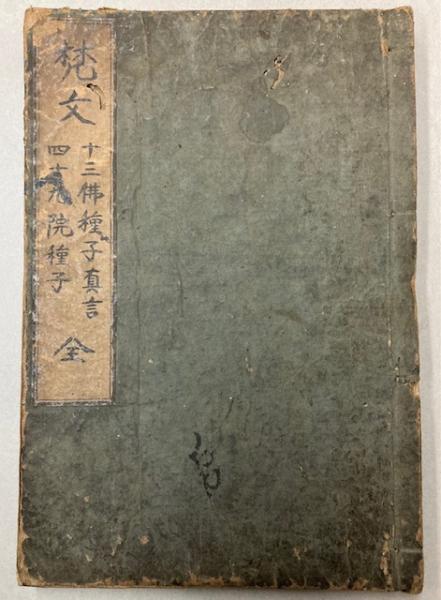 梵文
十三佛種子真言
四十九院種子
全